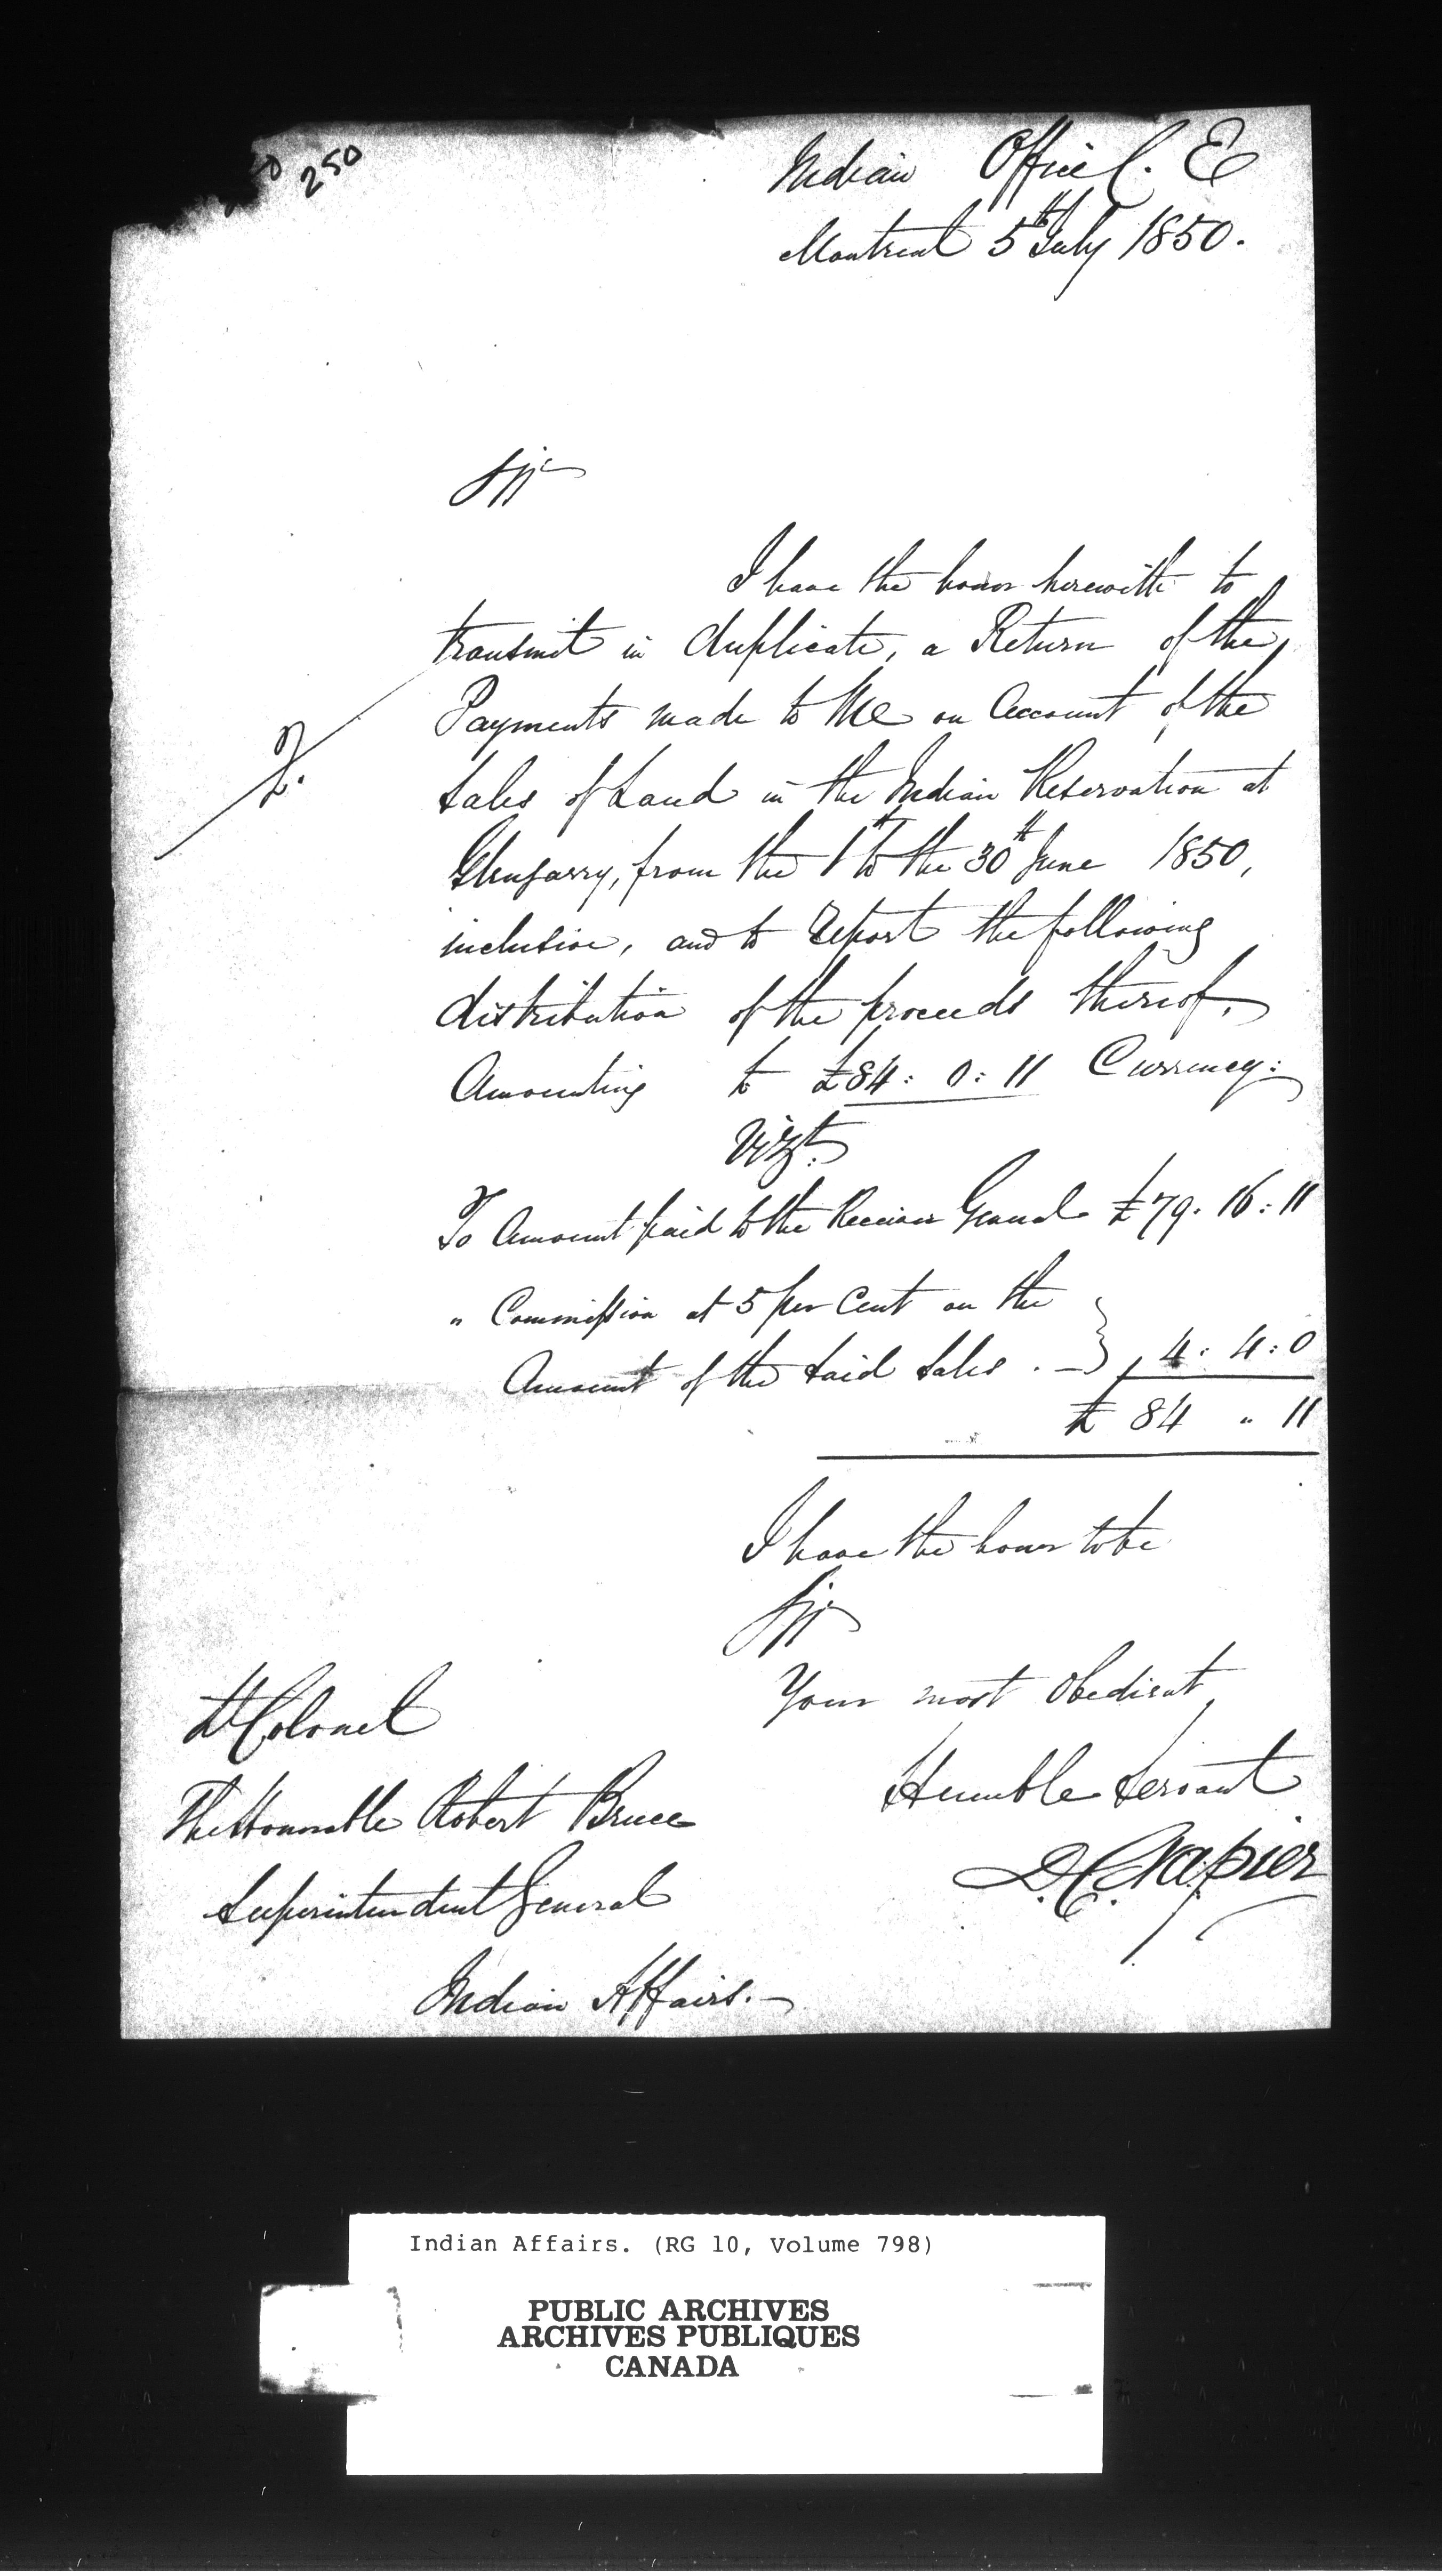 250
Indian Office C. E
Montreal 5th July 1850.
Sir
I have the honor herewith to
transmit in duplicate, a Return of the
Payments made to Me on Account of the
2.
Sales of Land in the Indian Reservation at
Glengarry, from the 1st to the 30th June 1850,
inclusive, and to Report the following
distribution of the proceeds thereof,
Amounting to £84: 0: 11 Currency:
Vizt:
To Amount paid to the Receiver General £79. 16: 11
" Commission at 5 per Cent on the
Amount of the Said Sales . — } 4: 4: 0
£ 84 " 11
I have the honor to be
Sir
Your most Obedient
Humble Servant
D. C. Napier
Lt Colonel
The Honorable Robert Bruce
Superintendent General
Indian Affairs. —
Indian Affairs. (RG 10, Volume 798)
PUBLIC ARCHIVES
ARCHIVES PUBLIQUES
CANADA